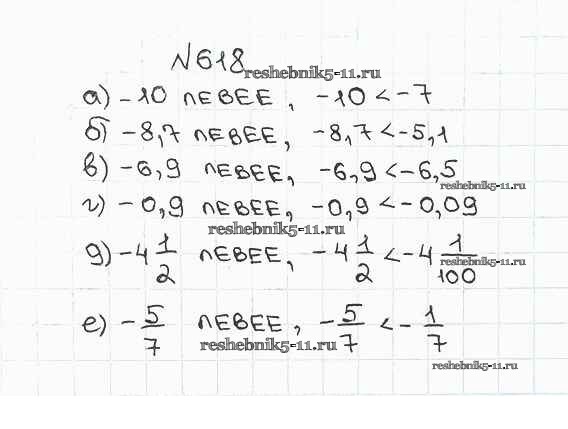 №618
reshebnik5-11.ru
а) -10 левее, -10 < -7
б) -8,7 левее, -8,7 < -5,1
в) -6,9 левее, -6,9 < -6,5
reshebnik5-11.ru
г) -0,9 левее, -0,9 < -0,09
reshebnik5-11.ru
д) -4 1/2 левее, -4 1/2 < -4 1/100
reshebnik5-11.ru
е) -5/7 левее, -5/7 < -1/7
reshebnik5-11.ru
reshebnik5-11.ru